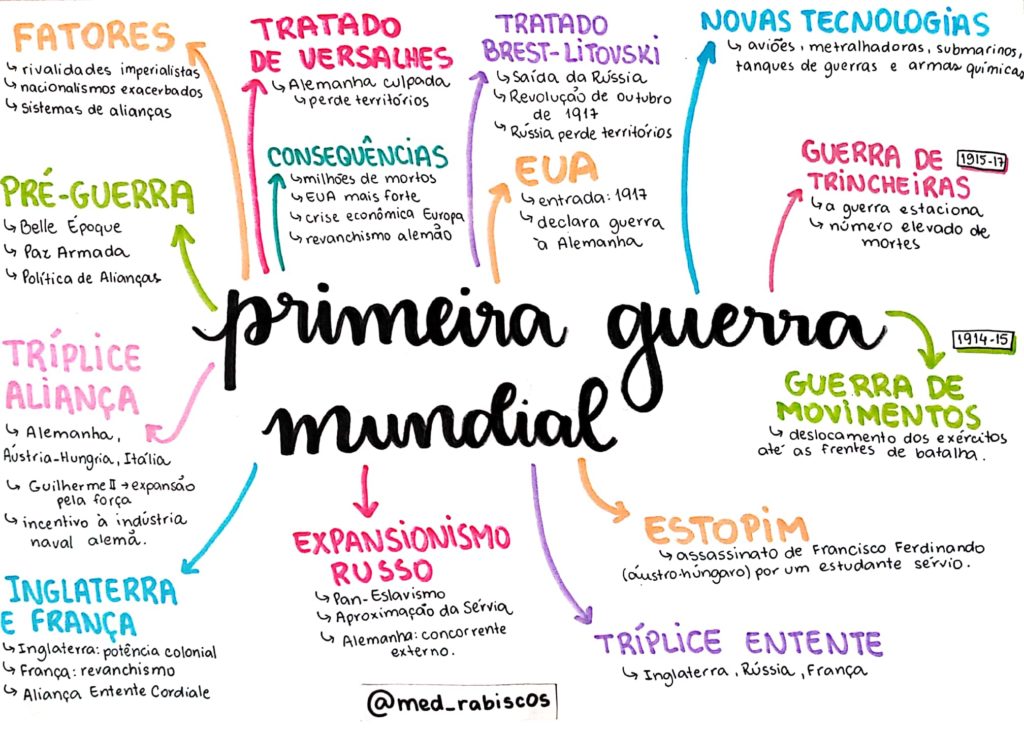 FATORES
↳ rivalidades imperialistas
↳ nacionalismos exacerbados
↳ sistemas de alianças
TRATADO
DE VERSALHES
↳ Alemanha culpada
↳ perde territórios
TRATADO
BREST-LITOVSKI
↳ Saída da Rússia
↳ Revolução de outubro
de 1917
↳ Rússia perde territórios
NOVAS TECNOLOGIAS
↳ aviões, metralhadoras, submarinos,
tanques de guerras e armas químicas
CONSEQUÊNCIAS
↳ milhões de mortos
↳ EUA mais forte
↳ crise econômica Europa
↳ revanchismo alemão
EUA
↳ entrada: 1917
↳ declara guerra
à Alemanha
GUERRA DE 1915-17
TRINCHEIRAS
↳ a guerra estaciona
↳ número elevado de
mortes
PRÉ-GUERRA
↳ Belle Époque
↳ Paz Armada
↳ Política de Alianças
primeira guerra
mundial
1914-15
GUERRA DE
MOVIMENTOS
↳ deslocamento dos exércitos
até as frentes de batalha.
TRÍPLICE
ALIANÇA
↳ Alemanha,
Áustria-Hungria, Itália
↳ Guilherme II → expansão
pela força
↳ incentivo à indústria
naval alemã.
INGLATERRA
E FRANÇA
↳ Inglaterra: potência colonial
↳ França: revanchismo
↳ Aliança Entente Cordiale
EXPANSIONISMO
RUSSO
↳ Pan-Eslavismo
↳ Aproximação da Sérvia
↳ Alemanha: concorrente
externo.
ESTOPIM
↳ assassinato de Francisco Ferdinando
(áustro-húngaro) por um estudante sérvio.
TRÍPLICE ENTENTE
↳ Inglaterra, Rússia, França
@med_rabiscos